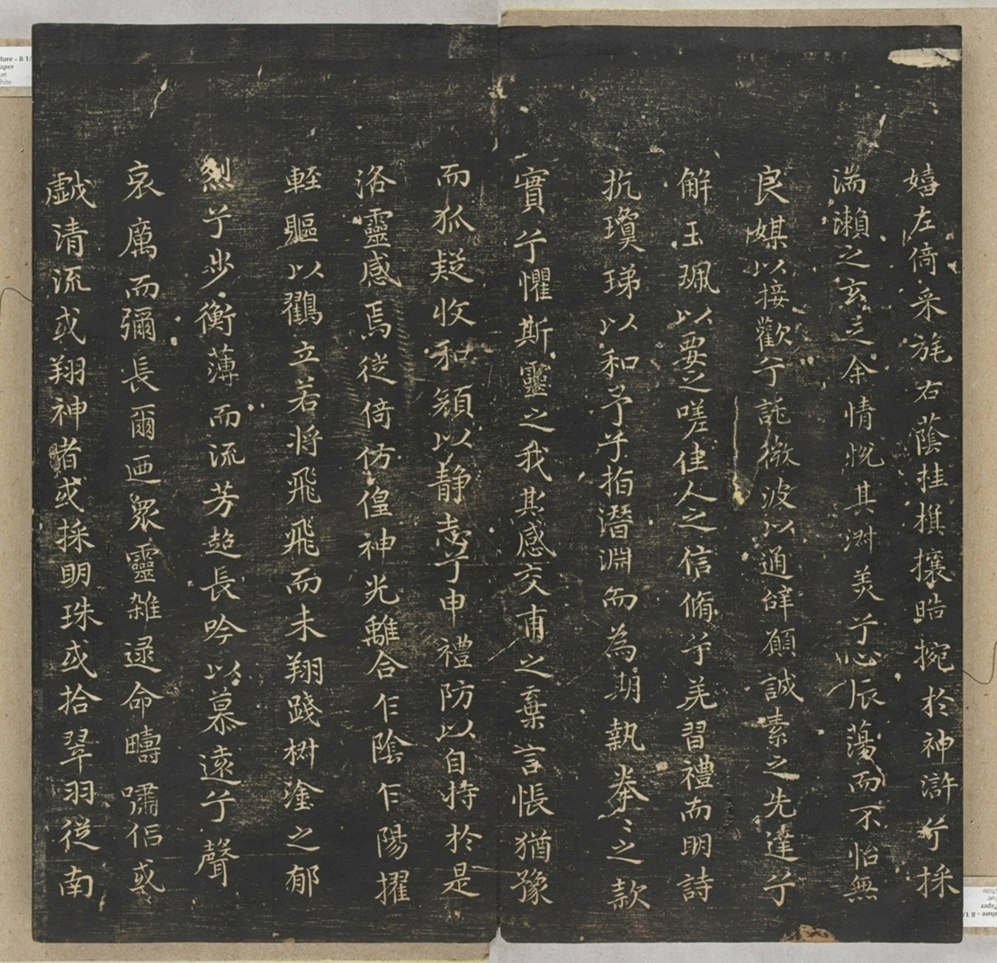 嬉左倚采旄右蔭桂旗攘皓捥於神滸兮採
湍瀨之玄芝余情悅其淑美兮心振蕩而不怡無
良媒以接歡兮託微波以通辭願誠素之先達兮
解玉珮以要之嗟佳人之信脩兮羌習禮而明詩
抗瓊珶以和予兮指潛淵而為期執拳〻之款
實兮懼斯靈之我欺感交甫之棄言悵猶豫
而狐疑收和顏以静志兮申禮防以自持於是
洛靈感焉徙倚仿偟神光離合乍陰乍陽擢
輕軀以鶴立若将飛飛而未翔踐椒塗之郁
烈兮步衡薄而流芳超長吟以慕遠兮聲
哀厲而彌長爾迺衆靈雜遝命疇嘯侶或
戯清流或翔神渚或採明珠或拾翠羽從南